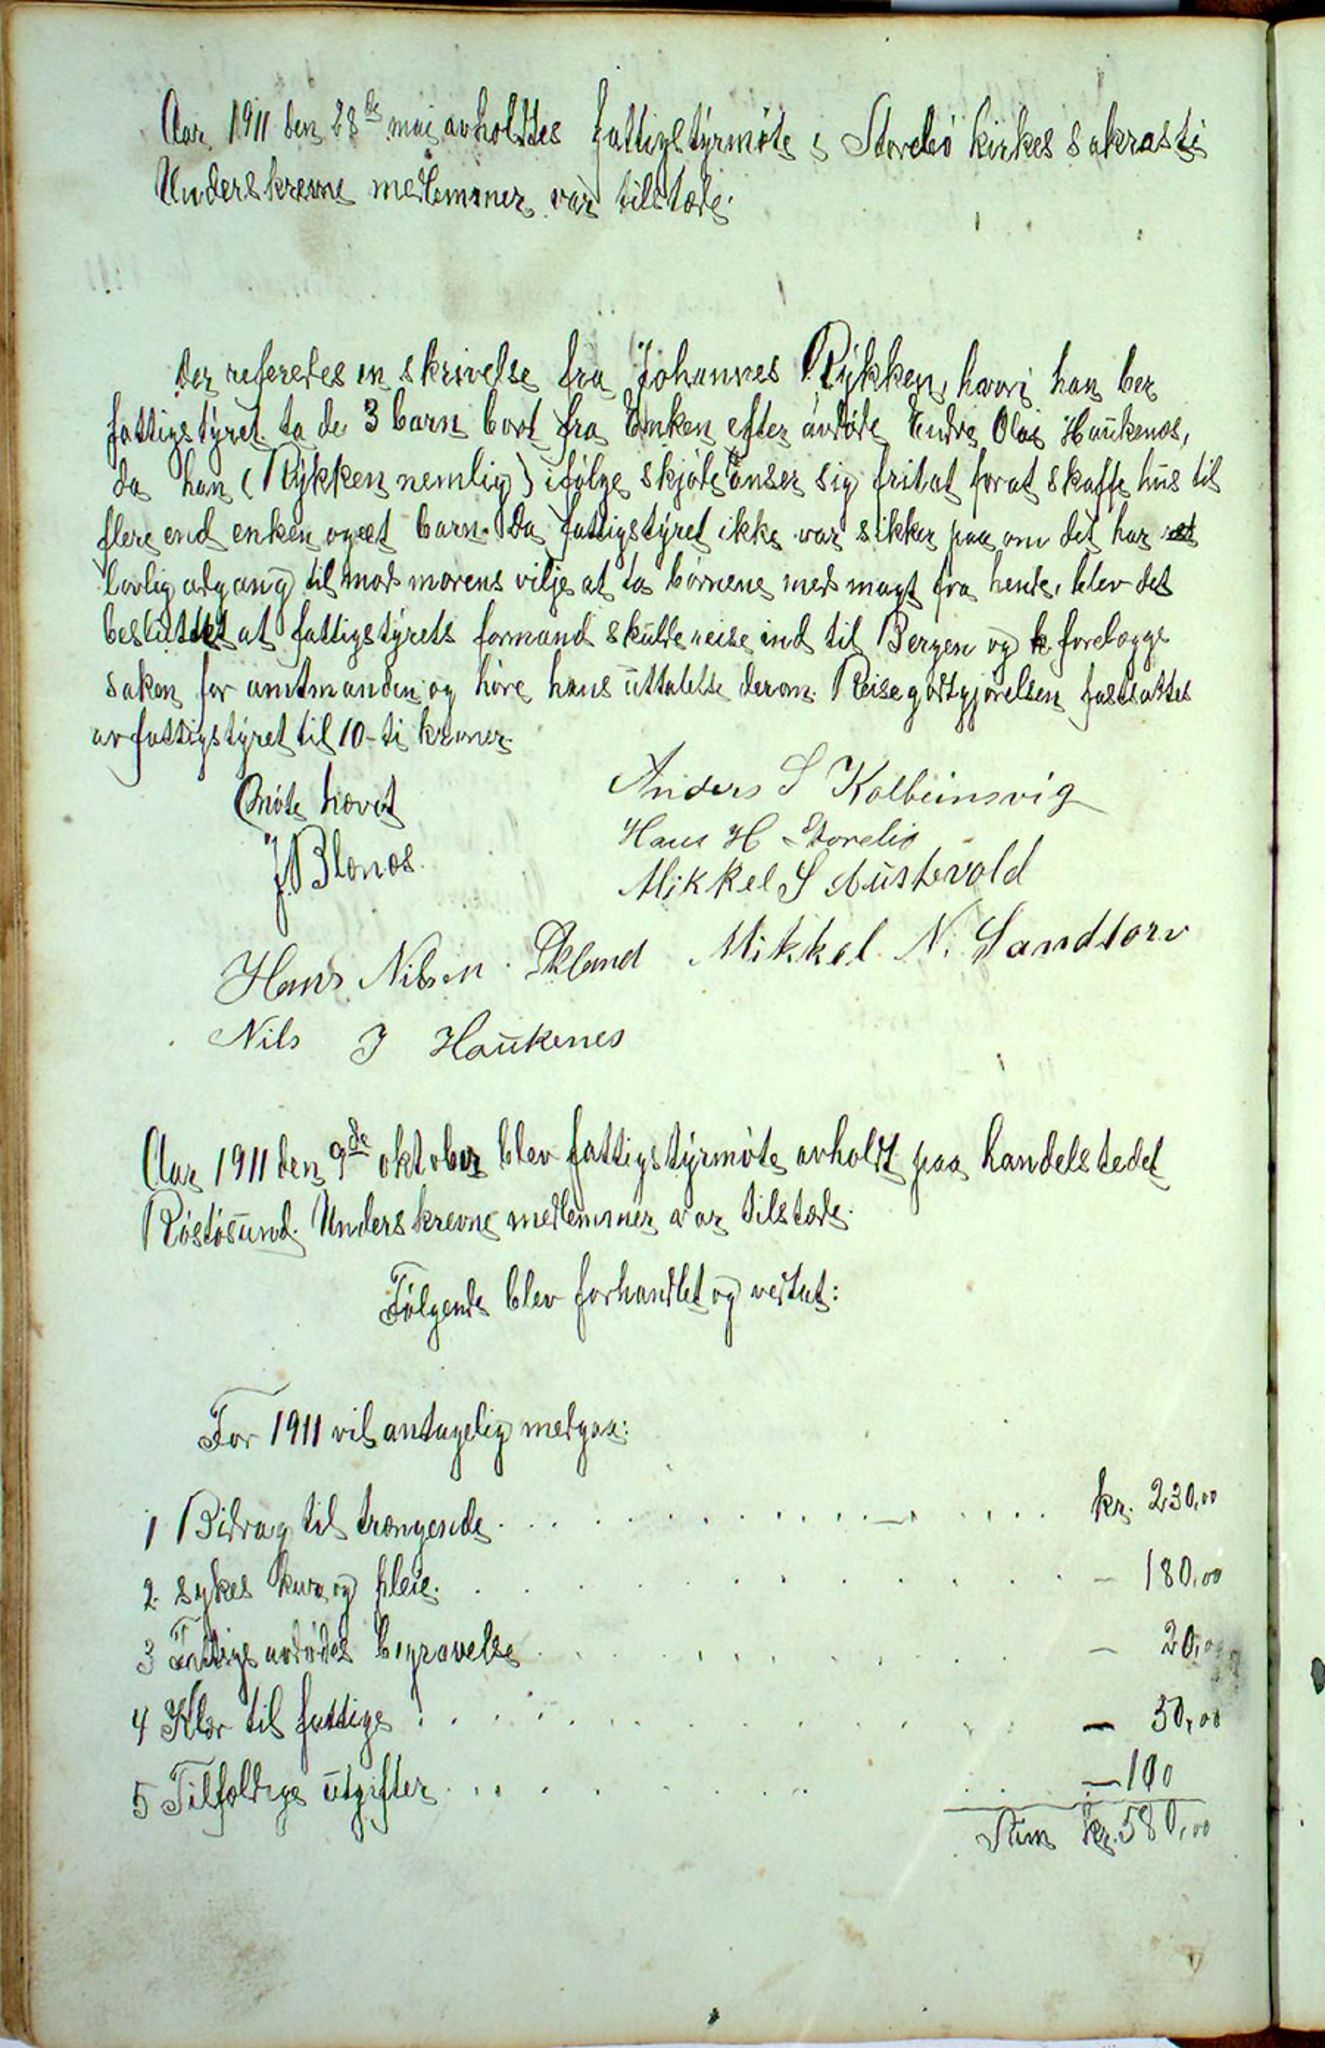 Aar 1911 den 28de mai avholdtes fattigstyrmöte i Storebö kirkes sakrasti
Underskrevne medlemmer var tilstæde.
Der referedes en skrivelse fra Johannes Rykken, hvori han ber
fattigstyret ta de 3 barn bort fra Enken efter avdöde Endre Olai Haukenæs,
da han (Rykken nemlig) ifölge skjöte anser sig fritat forat skaffe hus til
flere end enken og et barn. Da fattigstyret ikke var sikker paa om det har
lovlig adgang til mod morens vilje at ta börnene med magt fra hende, blev det
besluttet at fattigstyrets formand skulde reise ind til Bergen og forelægge
saken for amtmanden og höre hans uttalelse derom. Reisegodtgjörelsen fastsattes
av fattigstyret til 10-ti kroner.
Möte hævet
Anders S Kolbeinsvig
Hans H Storebö
J. Blænæs.
Mikkel S Austevold
Hans Nilsen Økland Mikkel N. Landtorv
Nils J Haukenes
Aar 1911 den 9de oktober blev fattigstyrmöte avholdt paa handelstedet
Röstösund. Underskrevne medlemmer var tilstæde.
Fölgende blev forhandlet og vedtat:
For 1911 vil antagelig medgaa:
1 Bidrag til trængende kr. 230,00
2. sykes kur og pleie. - 180,00
3 Fattige avdödes begravelse - 20,00
4 Klær til fattige - 50,00
5 Tilfældige utgifter - 100
Sum kr. 580,00